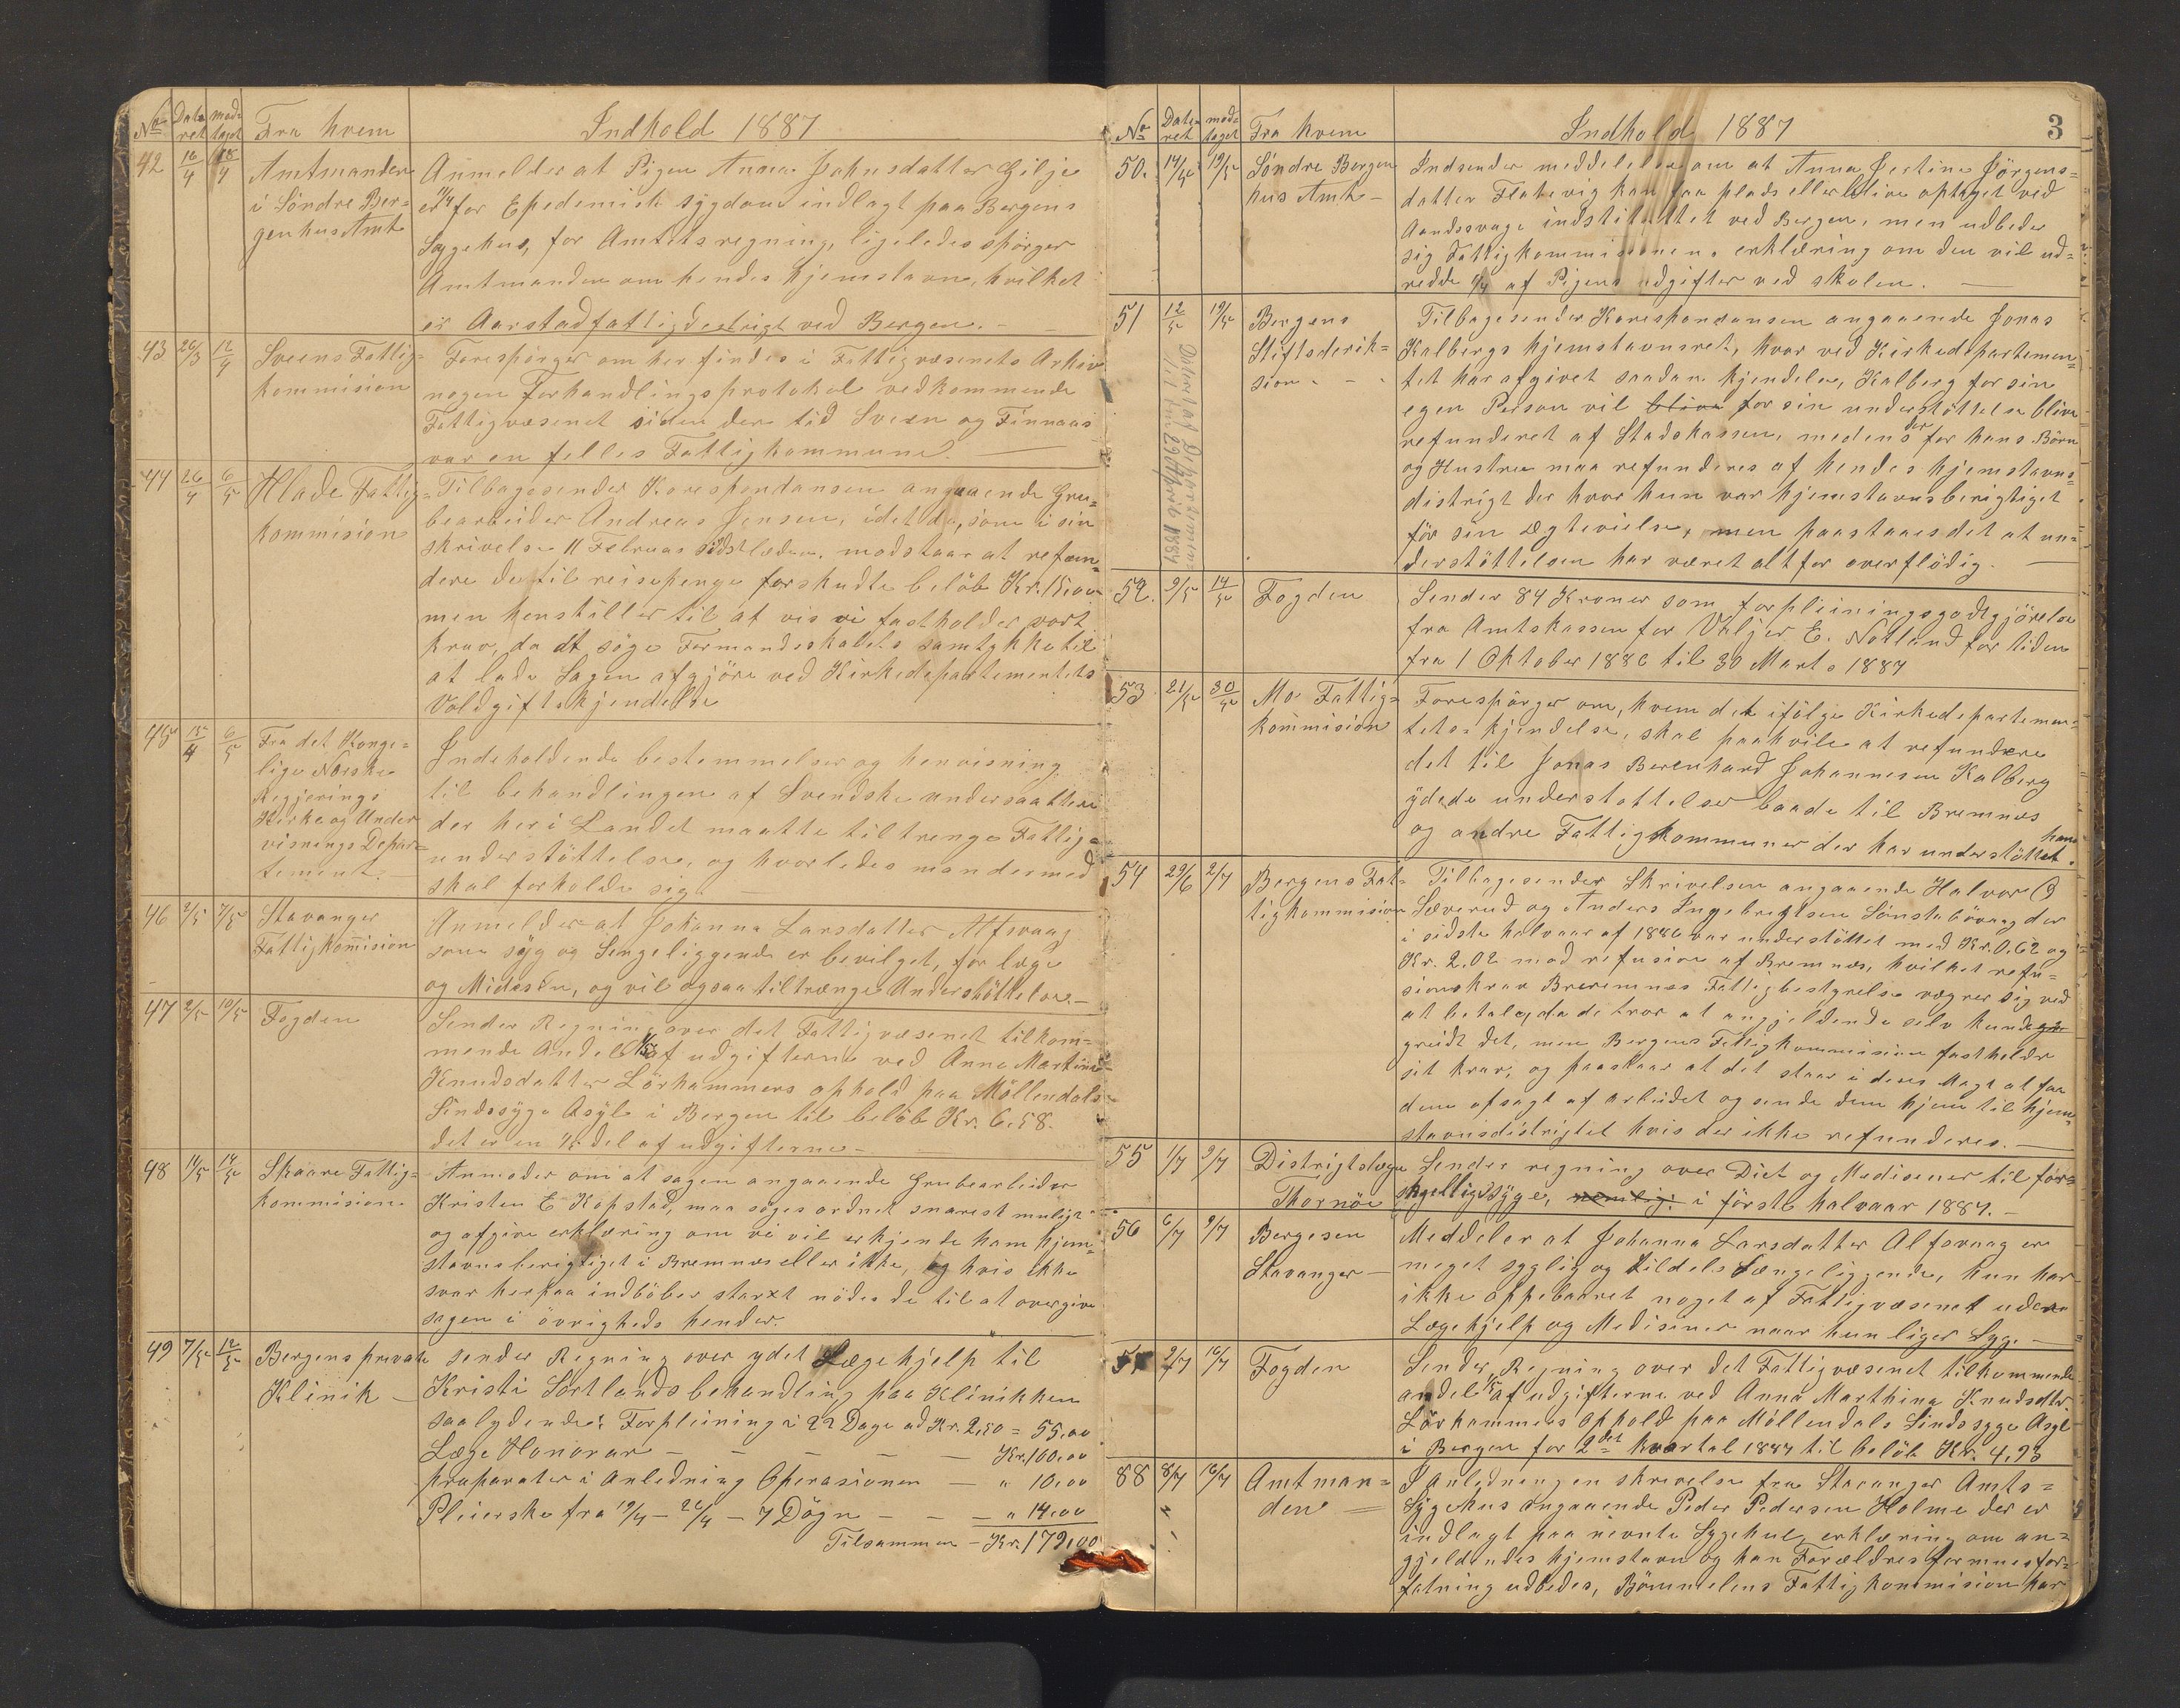 No Date= ret mod= taget Fra hvem Indhold 1887
42 16/4 18/4 Amtmanden Anmelder at Pigen Anna Johnsdatter Gilje
i Söndre Ber= er 11/4 for Epedemisk sygdom indlagt paa Bergens
genhus Amt Sygehus, for Amtets regning, ligeledes spörger
Amtmanden om hendes hjemstavn, hvilket
er Aarstadfattigdistrigt ved Bergen. –
43 26/3 12/4 Sveens Fattig= Forespörger om her findes i Fattigvæsenets Arkiv
kommision nogen Forhandlingsprotokol vedkommende
Fattigvæsenet siden den tid Sveen og Finnaas
var en felles Fattigkommune. –
44 26/4 6/5 Hlade Fattig= Tilbagesender Korespondansen angaaende Gru=
kommision bearbeider Andreas Jensen, idet de, som i sin
skrivelse 11 Februar sidstleden, modstaar at refun=
dere de til reisepenge forskudte belöb Kr. 15,00
men henstiller til at vis vi fastholder vort
krav, da at söge Formandskabets samtykke til
at lade Sagen afgjöre ved Kirkedepartementets
Voldgiftskjendelse
45 15/4 6/5 Fra det Konge= Indeholdende bestemmelser og henvisning
lige Norske til behandlingen af Svendske undersaatter
Regjerings der her i Landet maatte tiltrenge Fattig=
Kirke og Under understöttelse, og hvorledes man dermed
visnings Depar= skal forholde sig. –
tement. –
46 2/5 7/5 Stavanger Anmelder at Johanna Larsdatter Alfsvaag
Fattigkommision som syg og Sengeliggende er bevilget, for læge
og Midesin, og vil ogsaa tiltrænge Understöttelse. –
47 2/5 10/5 Fogden Sender Regning over det Fattigvæsenet tilkom=
mende Andel 1/5 af udgifterne ved Anna Martine
Knudsdatter Lörhammers ophold paa Möllendals
Sindssyge Asyl i Bergen til belöb Kr. 6,58.
det er en 1/5 del af udgifterne –
48 11/5 14/5 Skaare Fattig= Anmoder om at sagen angaaende Grubearbeider
kommision. Kristen E Kopstad, maa söges ordnet snarest muligt
og afgive erklæring om vi vil erkjende ham hjem=
stavnsberigtiget i Bremnæs eller ikke, og hvis ikke
svar herpaa indlöber starxt nödes de til at overgive
sagen i övrigheds hender.
49 7/5 12/5 Bergens private sender Regning over ydet Lægehjelp til
Klinik – Kristi Sortlands behandling paa Klinikken
saalydende: Forpleining i 22 Dage ad Kr. 2,50 = 55,00
Læge Honorar – – – – Kr. 100,00
præparater i Anledning Operasionen – " 10,00
Pleierske fra 19/4 – 26/4 – 7 Dögn – – – " 14,00
Tilsammen – Kr. 179,00
3
No Date= ret mod= taget Fra hvem Indhold 1887
50. 14/5 19/5 Söndre Bergen Indsender meddelelse om at Anna Jertine Jörgens=
hus Amt – datter Flatevig kan faa plads eller blive optaget ved
Aandssvage indstituttet ved Bergen, men udbeder
sig Fattigkommissionens erklæring om den vil ud=
redde 1/4 af Pigens udgifter ved skolen. –
51 12/5 19/5 Bergens Tilbagesender Korespondansen angaaende Jonas
Stiftsderik= Kalbergs hjemstavnsret, hvor ved Kirkedepartemen=
sion. – tet har afgivet saadan kjendelse, Kalberg for sin
egen Person vil blive for sin understöttelse blive
refunderet af Stadskassen, medens der for hans Börn
og Hustru maa refunderes af hendes hjemstavns=
distrigt der hvor hun var hjemstavnsberigtiget
för sin Ægtevielse, men paastaaes det at un=
derstöttelsen har været alt for overflödig. –
Datert af Departemene til den 29 April 1887
52. 9/5 14/5 Fogden Sender 84 Kroner som forpleiningsgodtgjörelse
fra Amtskassen for Viljer E. Notland for tiden
fra 1 Oktober 1886 til 30 Marts 1887
53 21/5 30/5 Mo Fattig= Forespörger om, hvem det ifölge Kirkedepartemen=
kommision tets kjendelse, skal paahvile at refundere
det til Jonas Berenhard Johannesen Kalberg
ydede understöttelser baade til Bremnæs
og andre Fattigkommuner der har understöttet ham.
54 29/6 2/7 Bergens Fat= Tilbagesender Skrivelsen angaaende Halvor O
tigkommision Sæverud og Anders Ingebrigtsen Sönstabövaag der
i sidste halvaar af 1886 var understöttet med Kr. 0,62 og
Kr. 2,02 mod refusion af Bremnæs, hvilket refu=
sionskrav Bremnæs Fattigbestyrelse vægrer sig ved
at betale, da de tror at angjeldende selv kunde gr
greidt det, men Bergens Fattigkommision fastholder
sit krav, og paastaar at det staar i deres Magt at faa
dem afsagt af arbeidet og sende dem hjem til hjem=
stavnsdistrigtet hvis der ikke refunderes. –
55 1/7 9/7 Distrigtslæge Sender regning over Diet og Medisener til for=
Thornöe skjellige Syge, nemlig: i förste halvaar 1887. –
56 6/7 9/7 Bergesen Meddeler at Johanna Larsdatter Alfsvaag er
Stavanger – meget sygelig og tildels Sængeliggende, hun har
ikke oppebaaret noget af Fattigvæsenet uden
Lægehjelp og Medisiner naar hun liger Syg. –
57 9/7 16/7 Fogden Sender Regning over det Fattigvæsenet tilkommende
andel 1/5 af udgifterne ved Anna Marthina Knudsdtr
Lörhammers ophold paa Möllendals Sindssyge Asyl
i Bergen for 2det kvartal 1887 til belöb Kr. 4,93
88 8/7 16/7 Amtman= I Anledning en skrivelse fra Stavanger Amts=
den – Sygehus angaaende Peder Pedersen Holme der er
indlagt paa nevnte Sygehus, erklæring om an=
gjeldendes hjemstavn og han Forældres formuesfor=
fatning udbedes, Bömmelens Fattigkommision har